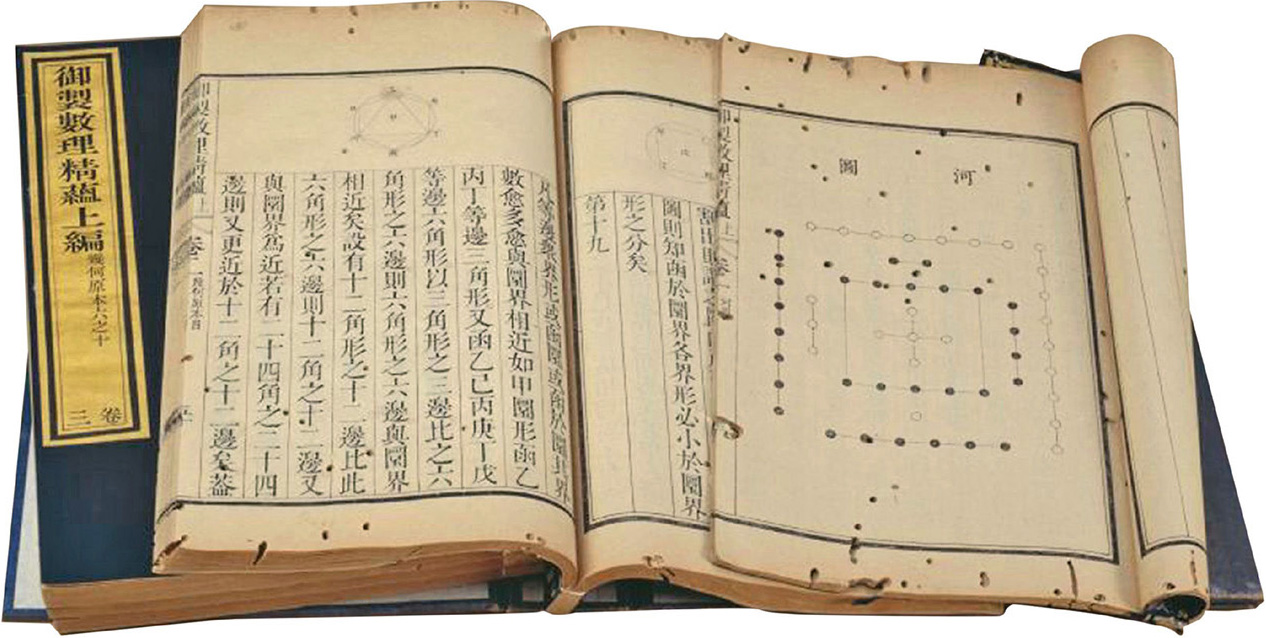 御製數理精蘊上編
幾何原本
六之十
卷三
數愈多愈與圜界相近如甲圜形函乙
丙丁等邊三角形又函乙己丙庚丁戊
等邊六角形以三角形之三邊比之六
角形之六邊則六角形之六邊與圜界
相近矣設有十二角形之十二邊比此
六角形之六邊則十二角之十二邊又
與圜界爲近若有二十四角之二十四
邊則又更近於十二角之十二邊矣蓋
圜則知函於圜界各界形必小於圜界
形之分矣
第十九
河圖